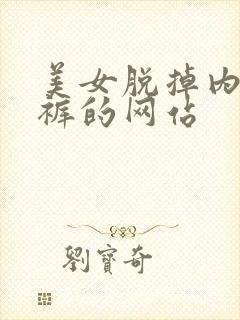 美女脱掉内
裤的网站
劉寳奇